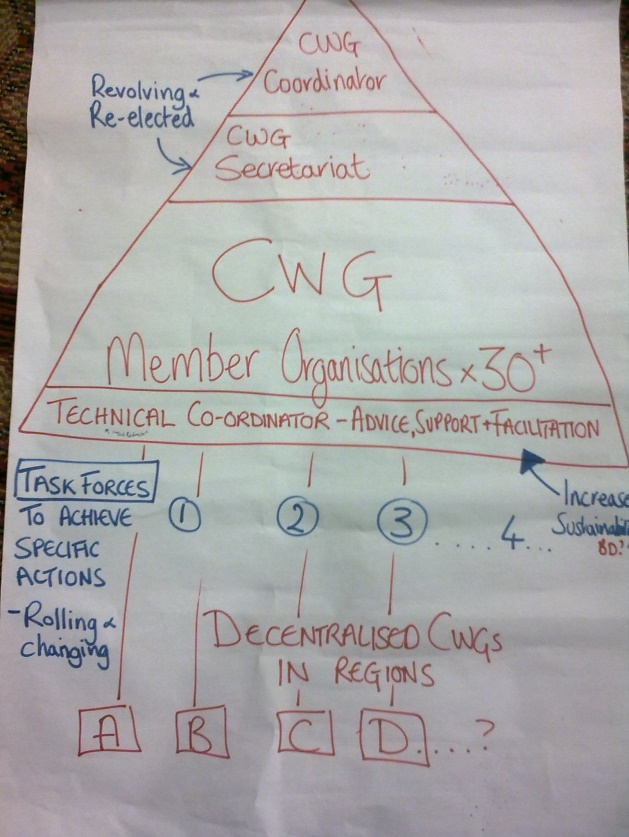 CWG
Coordinator
Revolving &
Re-elected
CWG
Secretariat
CWG
Member Organisations x 30+
TECHNICAL CO-ORDINATOR - ADVICE, SUPPORT + FACILITATION
TASK FORCES
TO ACHIEVE
SPECIFIC
ACTIONS
- Rolling &
changing
1 2 3 ..... 4...
Increase
DECENTRALISED CWGs
IN REGIONS
A B C D....?